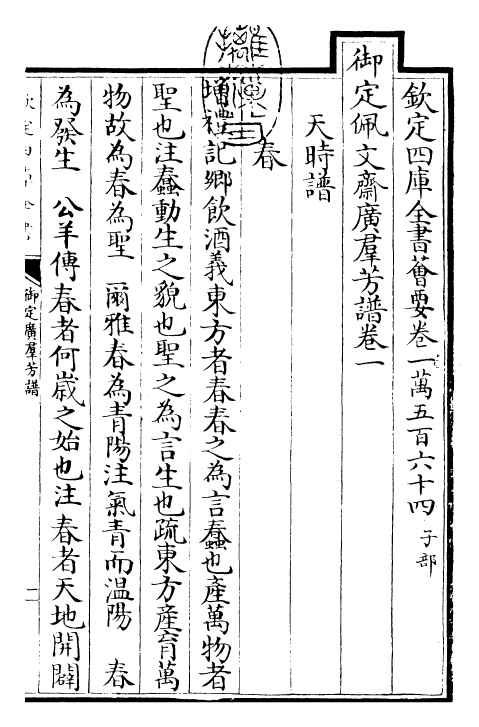 欽定四庫全書薈要卷一萬五百六十四 子部
御定佩文齋廣羣芳譜卷一
天時譜
春
增禮記鄉飲酒義東方者春春之為言蠢也產萬物者
聖也注蠢動生之貌也聖之為言生也疏東方產育萬
物故為春為聖 爾雅春為青陽注氣青而温陽 春
為發生 公羊傳春者何歲之始也注春者天地開闢
御定廣羣芳譜
一